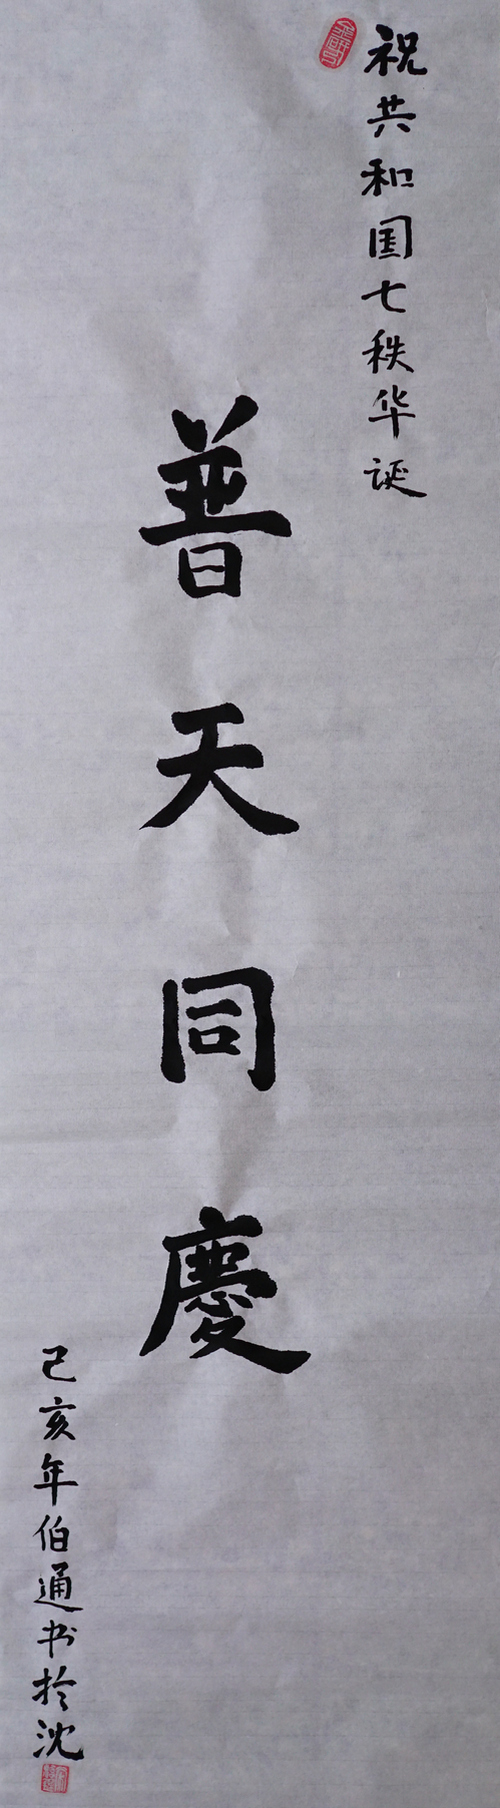 祝共和国七秩华诞
普天同慶
己亥年伯通书於沈